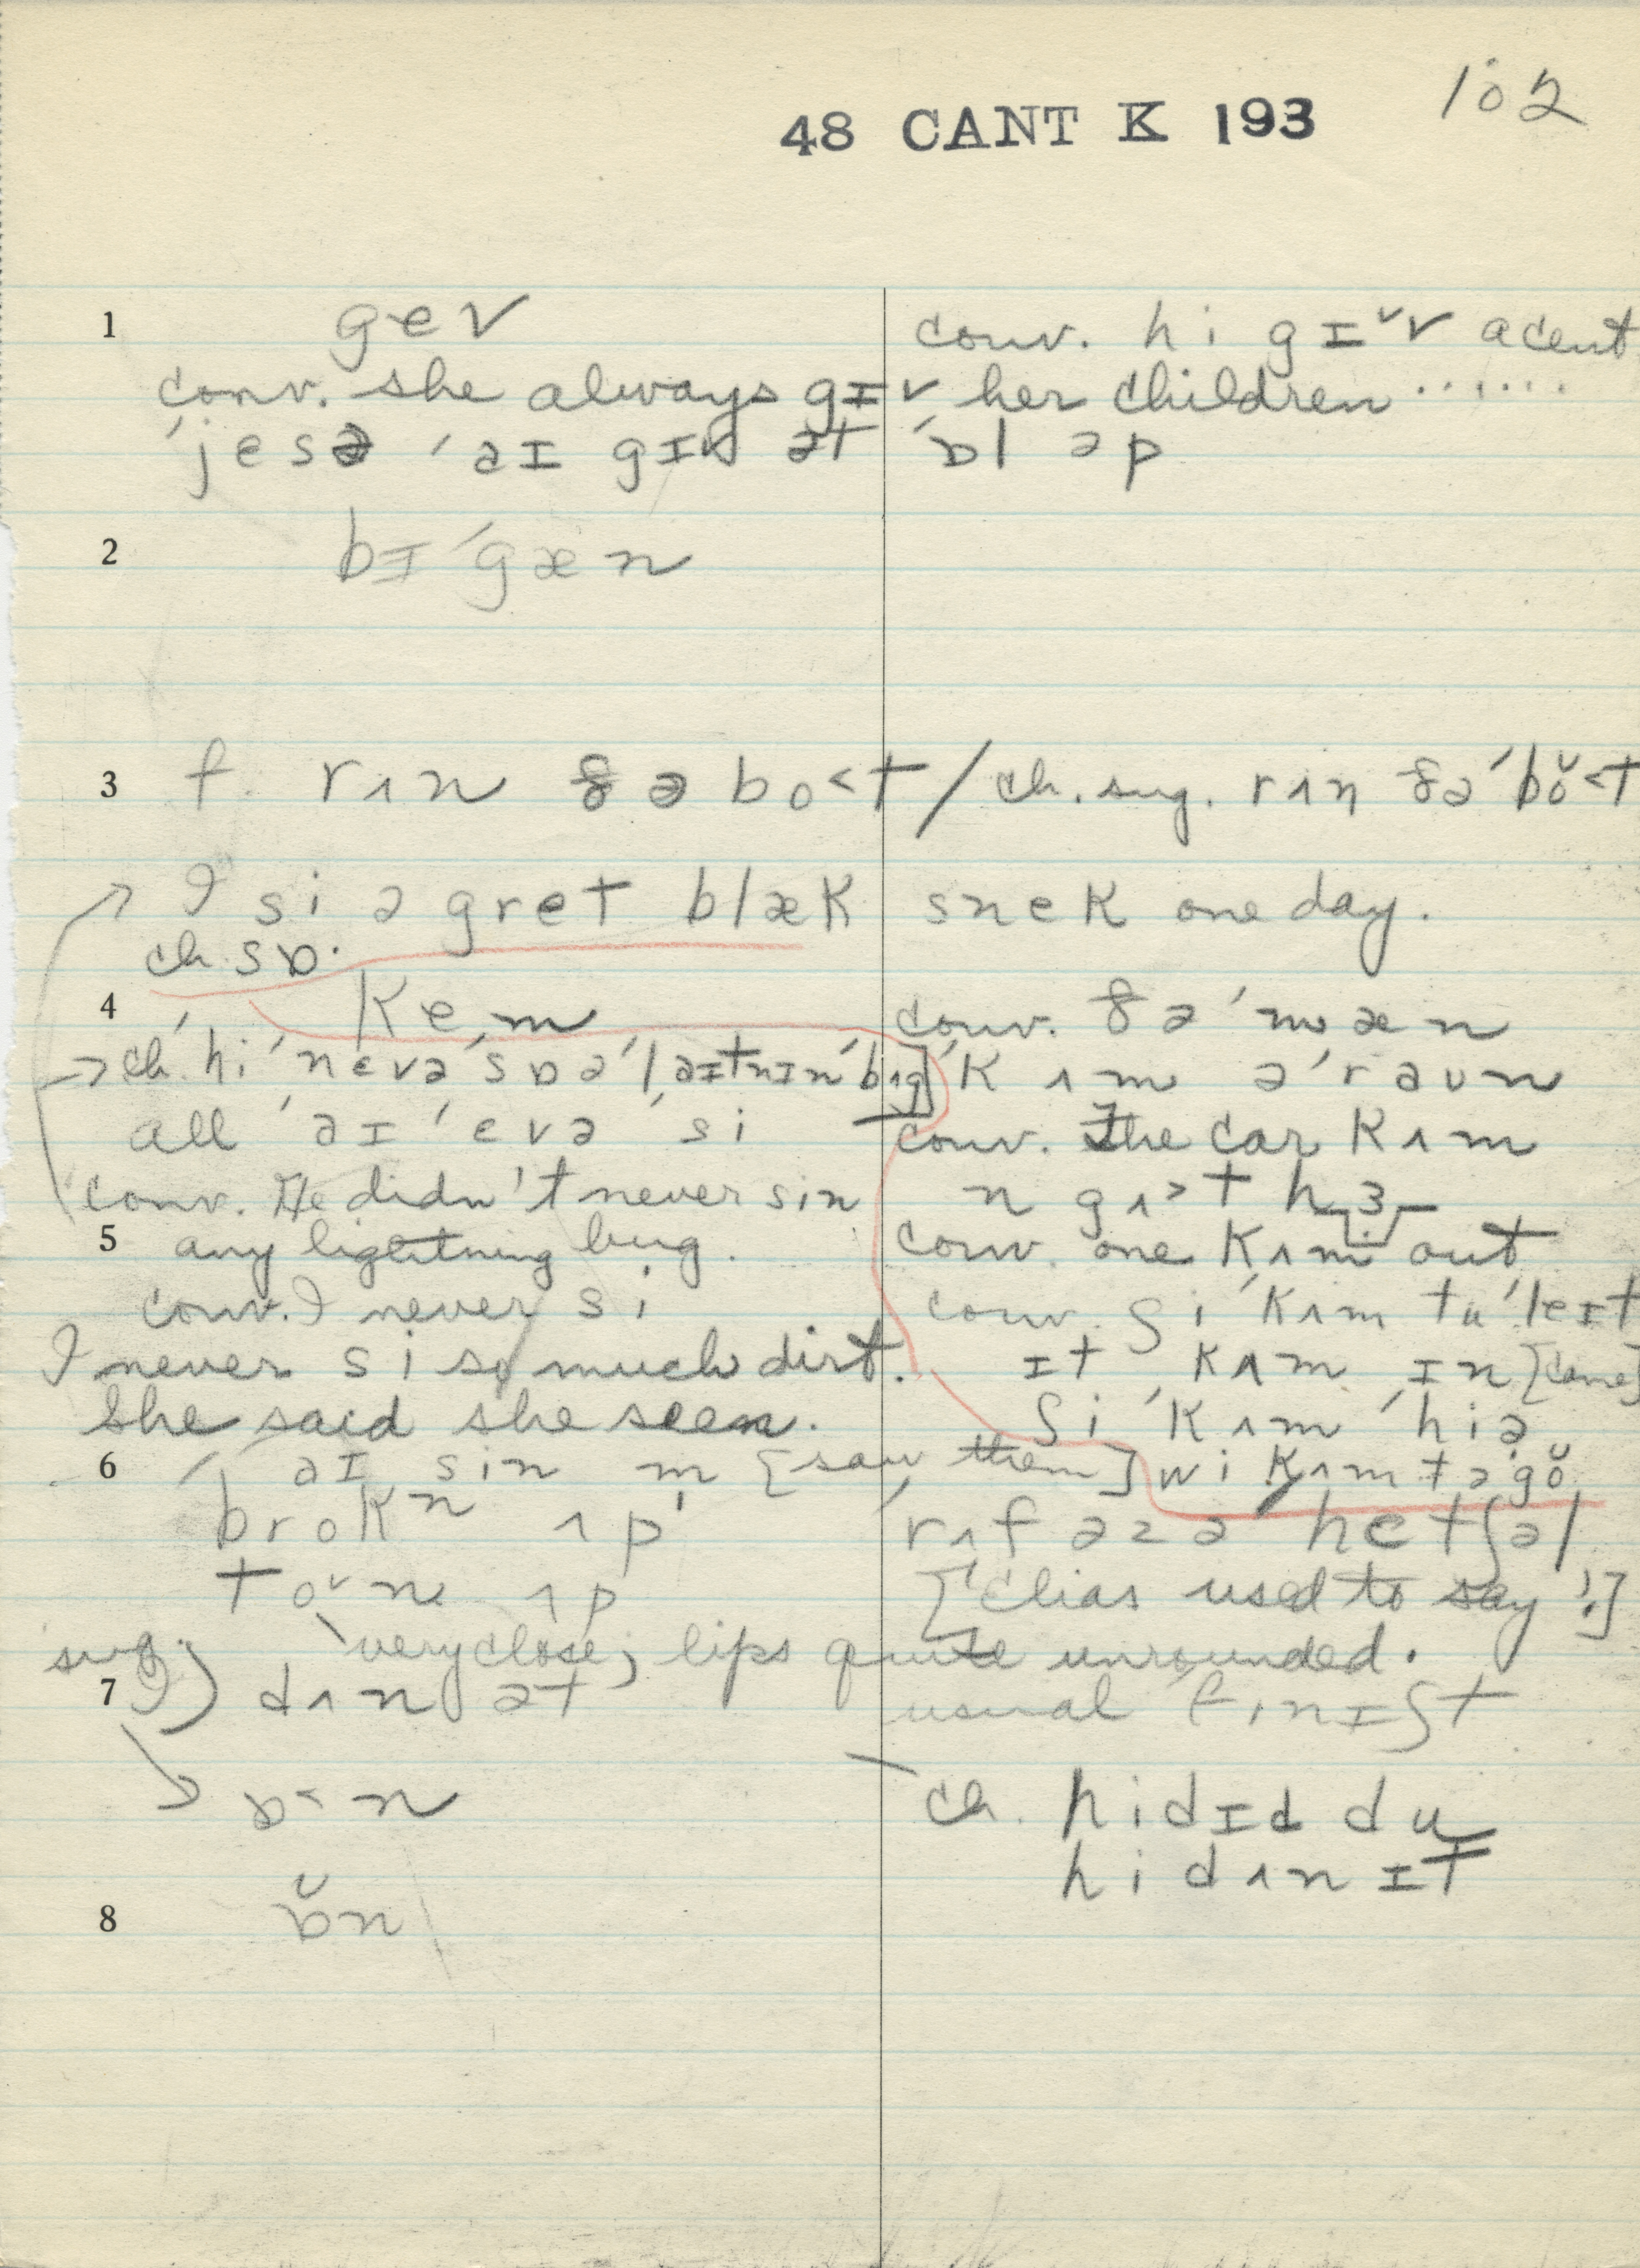 102
48 CANT K 193
1 gev
conv. hi gɪˇv a cent
conv. she always gɪv her children ......
ˈjesə ˈaɪ gɪv ət ˈɒl əp
2 bɪˈgæn
3 f. rʌn ðə bo˂t / ch. sug. rʌn ðəˈbŏ˂t
→ I si ə gret blæk snek one day.
ch. sɒ·
4 kem
conv. ðəˈmæn
ˈkʌm əˈraʊn
→ ch. hiˈnevəˈsɒəˈlaɪtnɪnˈbʌg]
all ˈaɪ ˈevə ˈsi
conv. The car kʌm
n gʌ˃t hɜ
conv. He didn't never sin
5 any lightning bug.
conv. one kʌm out
conv. I never si
conv. ʃiˈkʌm tuˈleɪt
I never si so much dirt.
ɪt kʌm ɪn [came]
She said she seen.
ʃi ˈkʌm ˈhiə
6 ˈaɪ sin m [saw them]
wi kʌm təgŏ
brokⁿ ʌp
ˈrʌf əzə ˈhetʃəl
toˇn ʌp
[Elias used to say!]
very close; lips quite unrounded.
7 sug. I) dʌn ət
usual ˈfɪnɪʃt
ɒ˂n
ch. hi dɪd du
hi dʌn ɪt
8 ɒ̆n